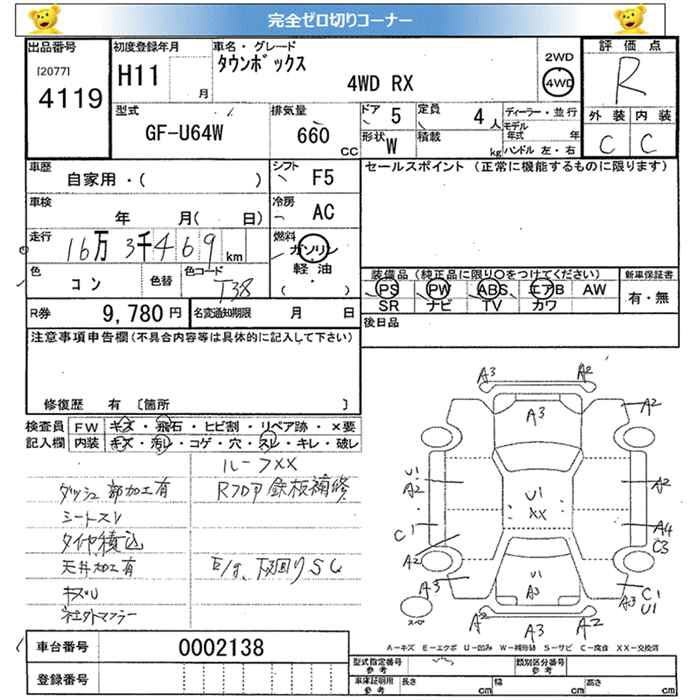 完全ゼロ切りコーナー
出品番号
[2077]
4119
初度登録年月
H11 月
車名・グレード
タウンボックス
4WD RX
2WD
4WD
評価点
R
外装 内装
C C
型式
GF-U64W
排気量
660 CC
ドア 5
定員 4 人
形状 W
積載 kg
ディーラー・並行
モデル年式 年
ハンドル 左・右
車歴
自家用・( )
シフト F5
車検
年 月( 日)
冷房 AC
走行
16万3千469 km
燃料
ガソリン
軽油
( ・ )
色
コン
色替
色コード
T38
R券 9,780円
名変通知期限 月 日
セールスポイント (正常に機能するものに限ります)
装備品(純正品に限り○をつけてください)
PS PW ABS エアB AW
SR ナビ TV カワ
新車保証書
有・無
後日品
注意事項申告欄(不具合内容等は具体的に記入して下さい)
修復歴 有 〔箇所 〕
検査員記入欄
FW キズ・飛石・ヒビ割・リペア跡・×要
内装 キズ・汚レ・コゲ・穴・スレ・キレ・破レ
ルーフXX
ダッシュ部加工有
Rフロア鉄板補修
シートスレ
タイヤ積込
天井加工有
E/g、下回りSC
キズU
社外マフラー
A3 A2
A3
A2
U1
A2
A2
U1
XX
C1
A4
C3
A2
A3
U1
A3
C1
U1
スペア
A2 A3 A2
A－キズ E－エクボ U－凹み W－補修跡 S－サビ C－腐食 XX－交換済
車台番号 0002138
登録番号
型式指定番号
参考
類別区分番号
参考
車庫証明用
参考
長さ cm
幅 cm
高さ cm